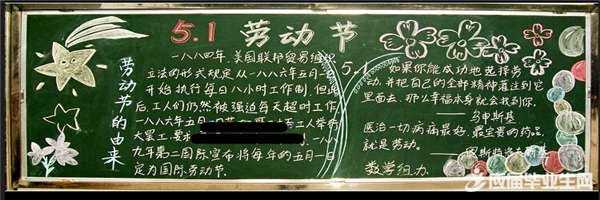 5.1 劳动节
劳动节的由来
一八八四年,美国联邦贸易组织
立法的形式规定从一八八六年五月一
开始执行每日八小时工作制,但此
后,工人们仍然被强迫每天超时工作
一八八六年五月一
大罢工,要求 一八八
九年第二国际宣布将每年的五月一日
定为国际劳动节.
5.1
如果你能成功地选择劳
动,并把自己的全部精神灌注到它
里面去,那么幸福本身就会找到你.
——乌申斯基
医治一切病痛最好,最宝贵的药品,
就是劳动.
数学组办
应届毕业生网